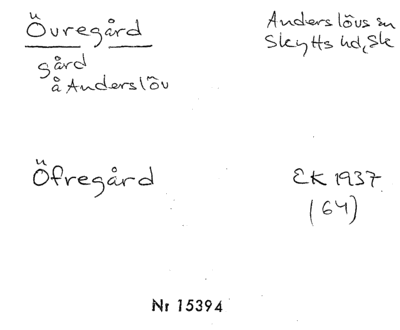 Övregård Anderslövs sn
gård Skytts hd, Sk
å Anderslöv
Öfregård EK 1937
(64)
Nr 15394